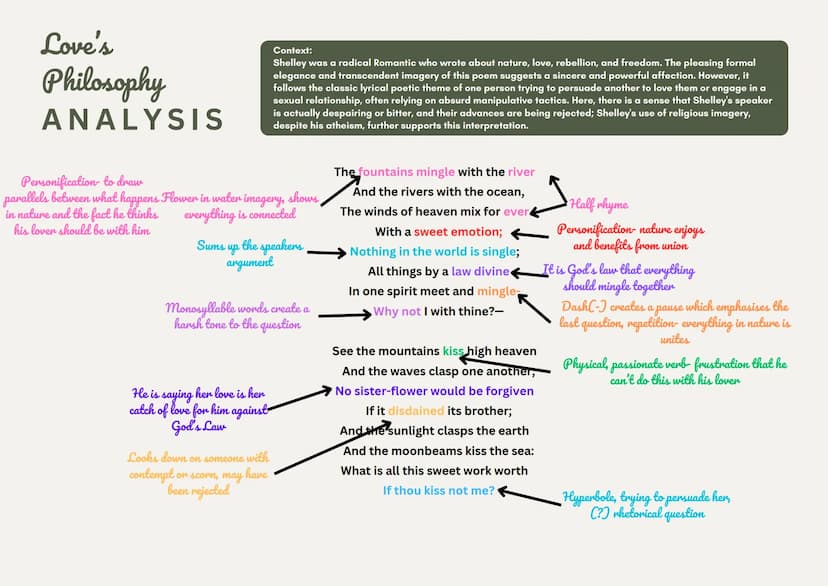 Love's
Philosophy
ANALYSIS
Context:
Shelley was a radical Romantic who wrote about nature, love, rebellion, and freedom. The pleasing formal
elegance and transcendent imagery of this poem suggests a sincere and powerful affection. However, it
follows the classic lyrical poetic theme of one person trying to persuade another to love them or engage in a
sexual relationship, often relying on absurd manipulative tactics. Here, there is a sense that Shelley's speaker
is actually despairing or bitter, and their advances are being rejected; Shelley's use of religious imagery,
despite his atheism, further supports this interpretation.
Personification- to draw
parallels between what happens
in nature and the fact he thinks
his lover should be with him
Flower in water imagery, shows
everything is connected
Sums up the speakers
argument
Monosyllable words create a
harsh tone to the question
He is saying her love is her
catch of love for him against
God's Law
Looks down on someone with
contempt or scorn, may have
been rejected
The fountains mingle with the river
And the rivers with the ocean,
The winds of heaven mix for ever
With a sweet emotion;
Nothing in the world is single;
All things by a law divine
In one spirit meet and mingle-
Why not I with thine?—
See the mountains kiss high heaven
And the waves clasp one another;
No sister-flower would be forgiven
If it disdained its brother;
And the sunlight clasps the earth
And the moonbeams kiss the sea:
What is all this sweet work worth
If thou kiss not me?
Half rhyme
Personification- nature enjoys
and benefits from union
It is God's law that everything
should mingle together
Dash(-) creates a pause which emphasises the
last question, repetition- everything in nature is
unites
Physical, passionate verb- frustration that he
can't do this with his lover
Hyperbole, trying to persuade her,
(?) rhetorical question